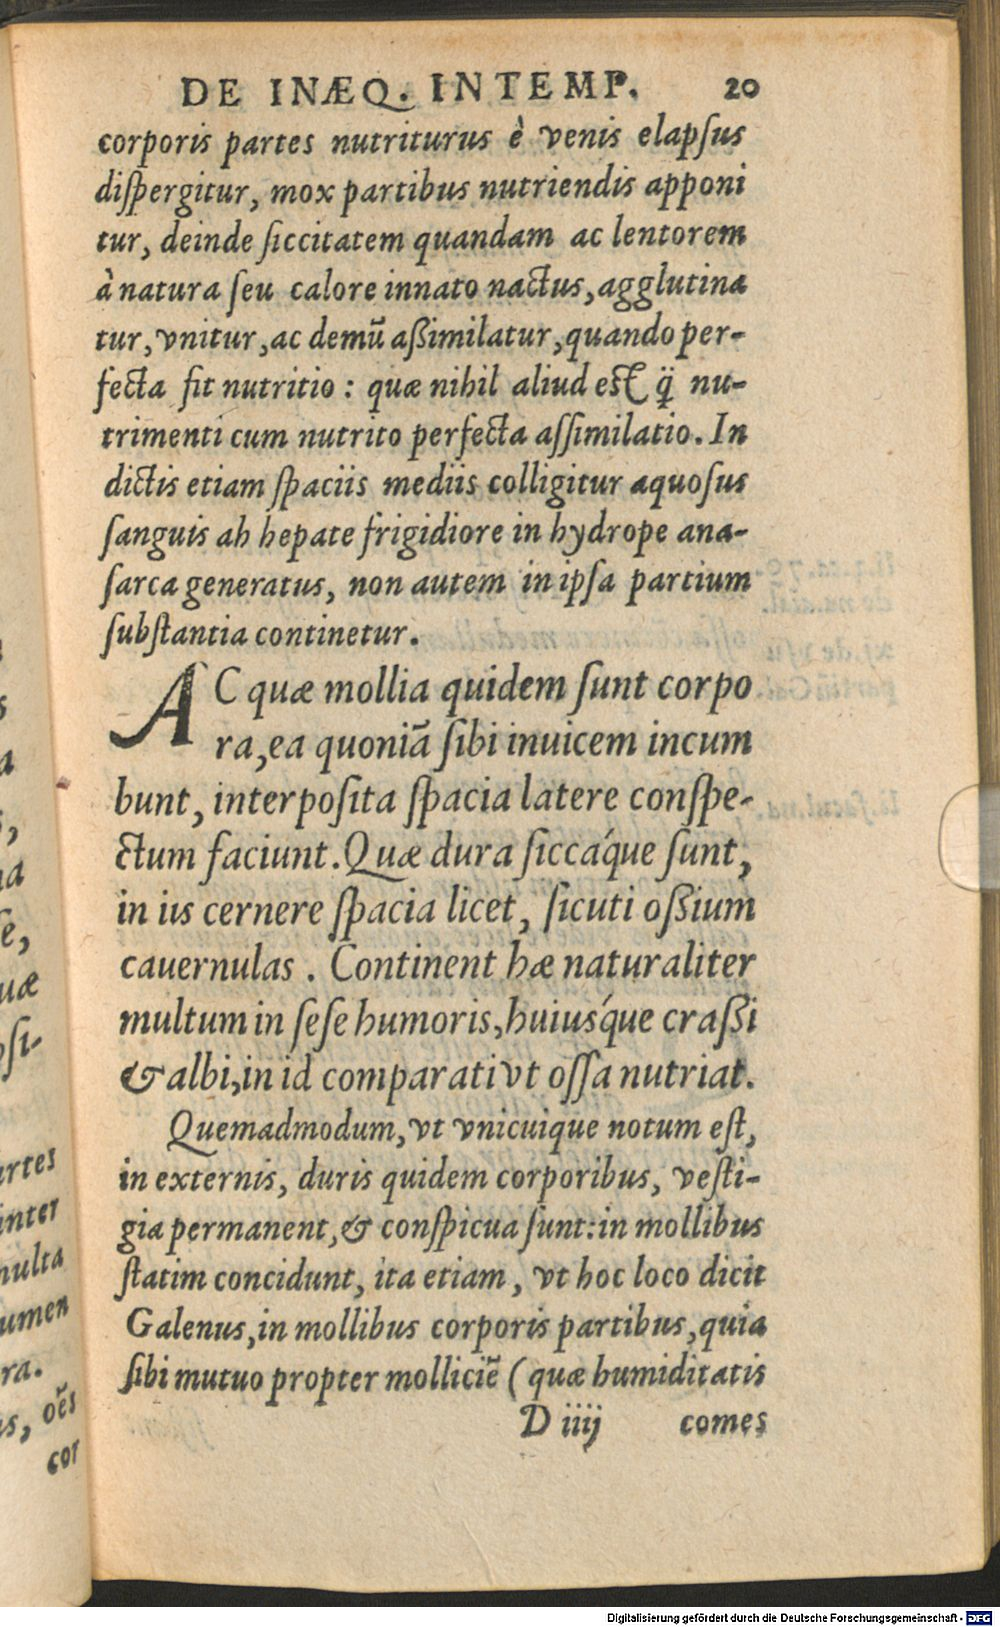 DE INÆQ. INTEMP. 20
corporis partes nutriturus è venis elapſus
diſpergitur, mox partibus nutriendis apponi
tur, deinde ſiccitatem quandam ac lentorem
à natura ſeu calore innato nactus, agglutina
tur, vnitur, ac demũ aßimilatur, quando per-
fecta fit nutritio: quæ nihil aliud est q̃ nu-
trimenti cum nutrito perfecta aſſimilatio. In
dictis etiam ſpaciis mediis colligitur aquoſus
ſanguis ab hepate frigidiore in hydrope ana-
ſarca generatus, non autem in ipſa partium
ſubſtantia continetur.
AC quæ mollia quidem ſunt corpo
ra, ea quoniã ſibi inuicem incum
bunt, interpoſita ſpacia latere conſpe-
ctum faciunt. Quæ dura ſiccáque ſunt,
in iis cernere ſpacia licet, ſicuti oßium
cauernulas. Continent hæ naturaliter
multum in ſeſe humoris, huiusque craßi
& albi, in id comparati vt oſſa nutriat.
Quemadmodum, vt vnicuique notum eſt,
in externis, duris quidem corporibus, veſti-
gia permanent, & conſpicua ſunt: in mollibus
ſtatim concidunt, ita etiam, vt hoc loco dicit
Galenus, in mollibus corporis partibus, quia
ſibi mutuo propter molliciẽ (quæ humiditatis
D iiij comes
artes
inter
multa
umen
ra.
oẽs
cor
Digitalisierung gefördert durch die Deutsche Forschungsgemeinschaft - DFG